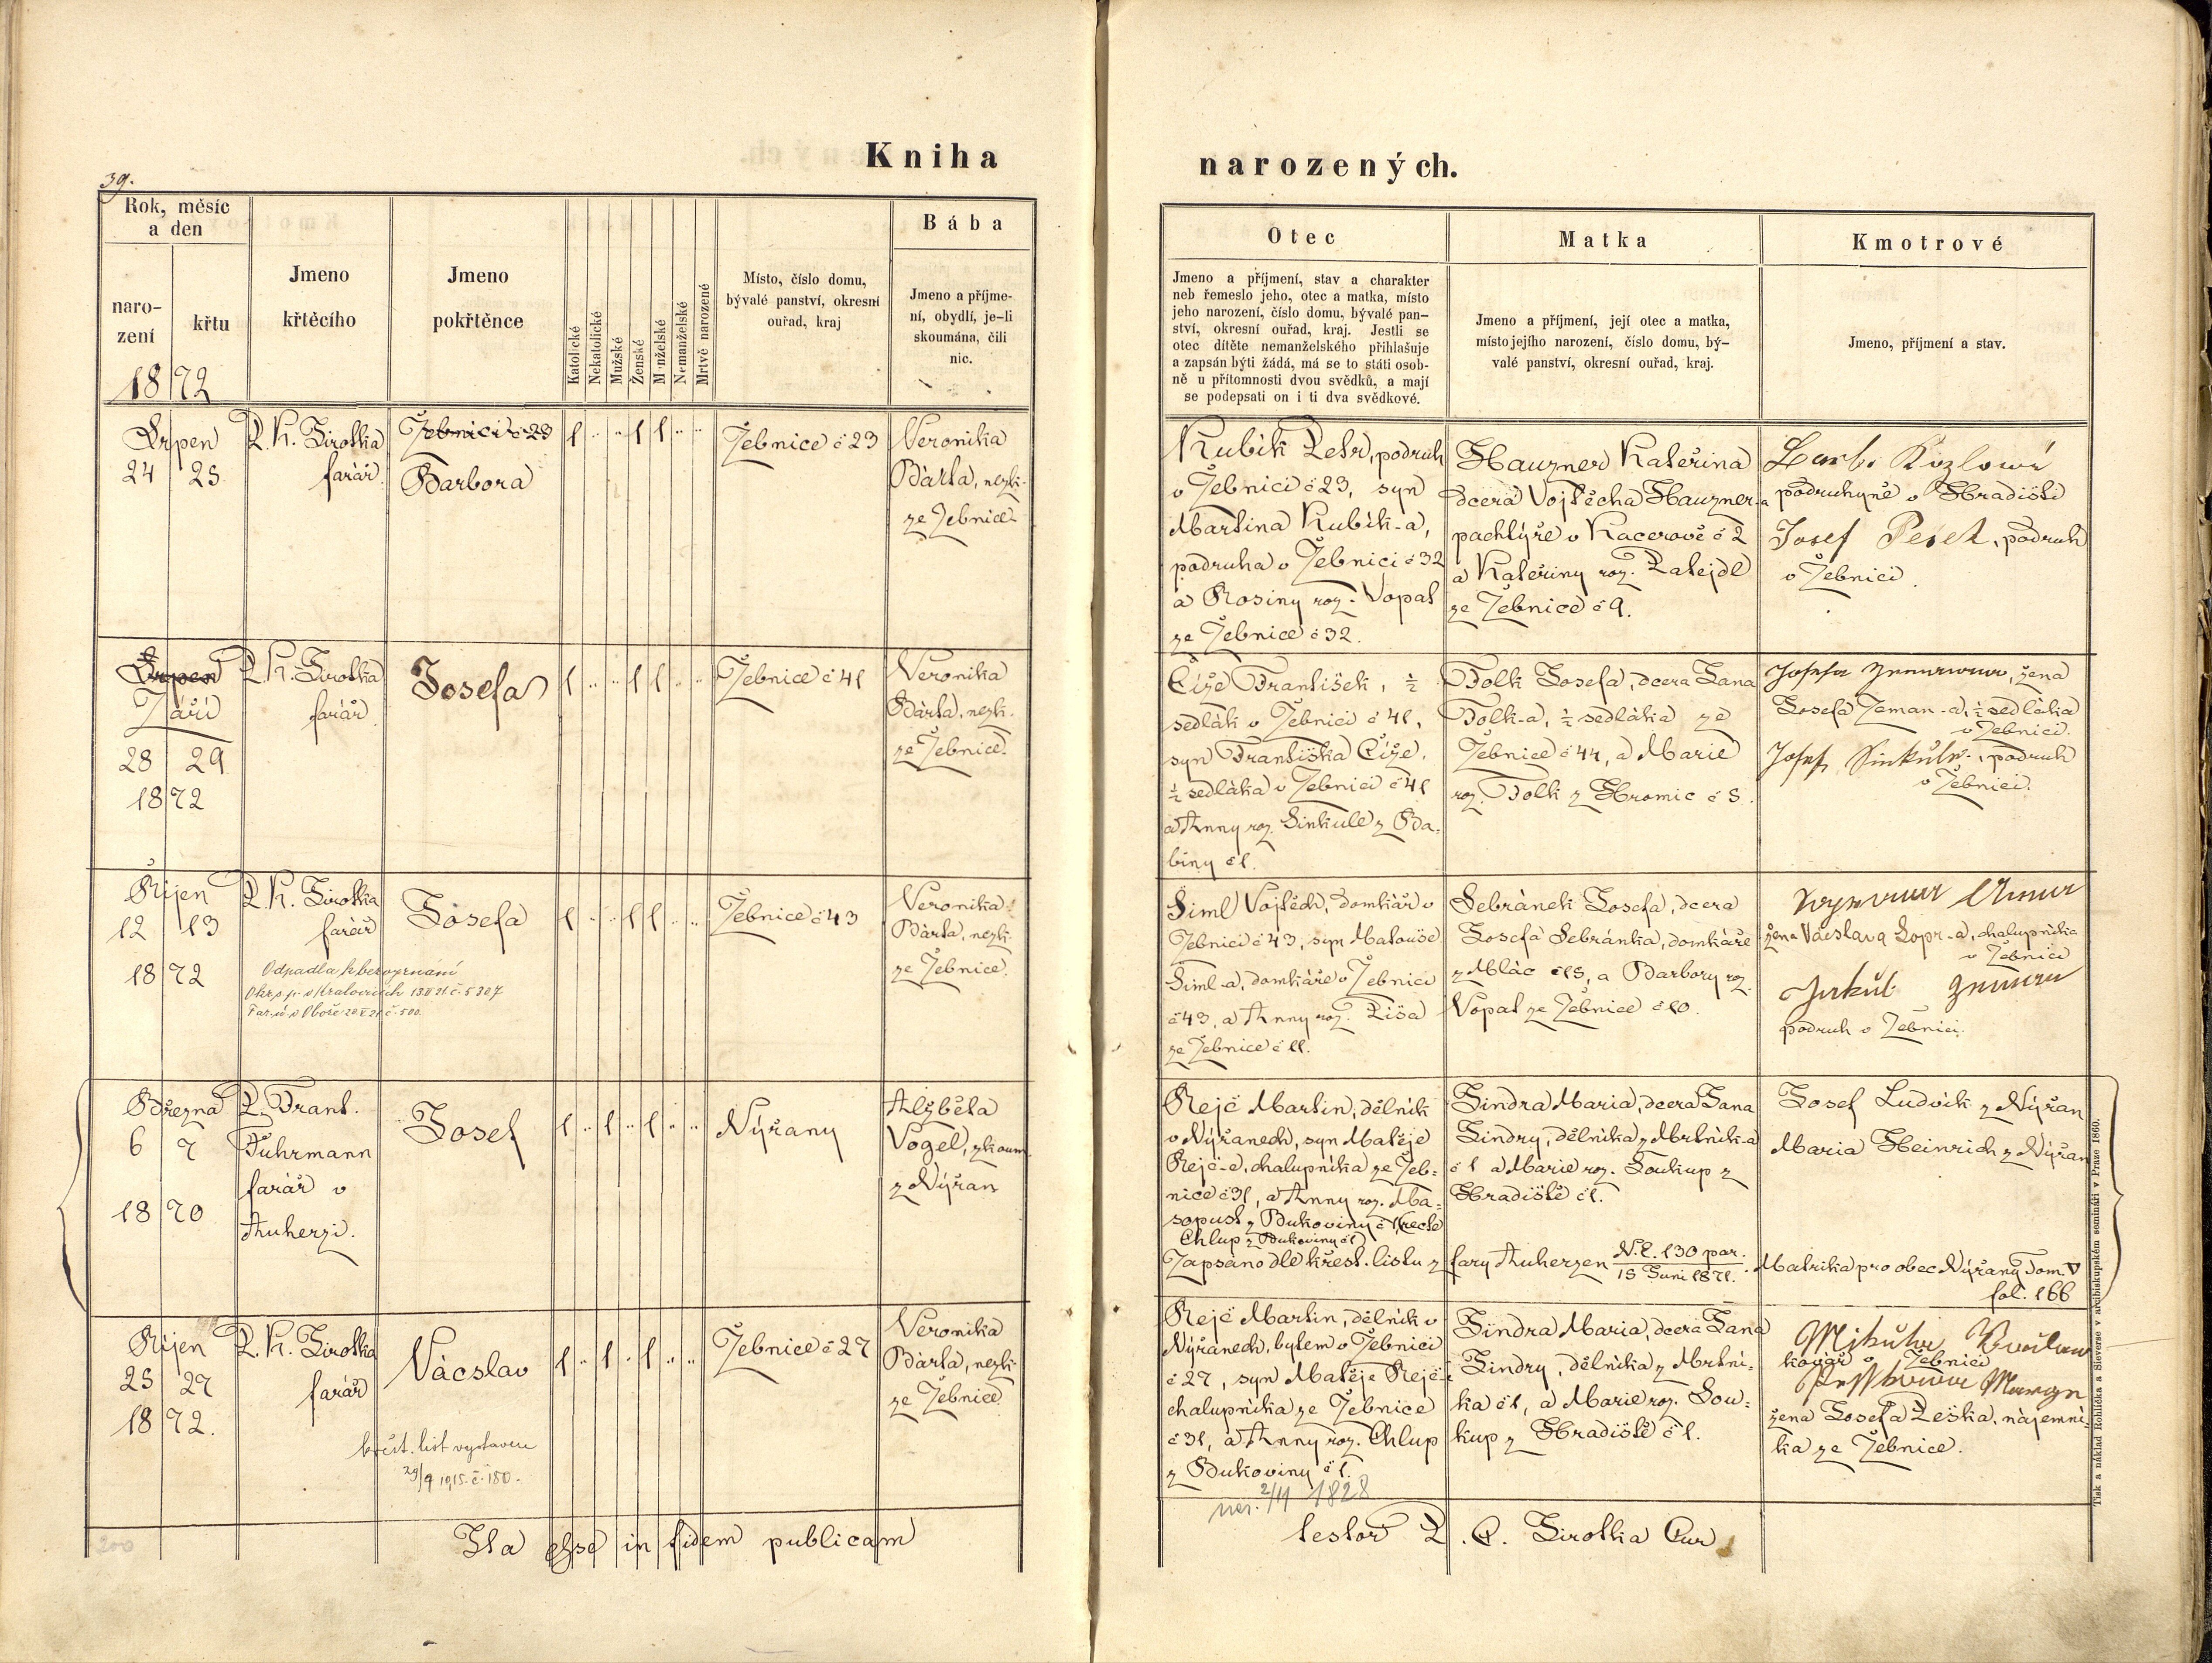 Kniha
narozených.
39.
Rok, měsíc
a den
naro-
zení
křtu
1872
Jmeno
křtěcího
Jmeno
pokřtěnce
Katolické
Nekatolické
Mužské
Ženské
Manželské
Nemanželské
Mrtvě narozené
Místo, číslo domu,
bývalé panství, okresní
ouřad, kraj
Bába
Jmeno a příjme-
ní, obydlí, je-li
skoumána, čili
nic.
Otec
Jmeno a příjmení, stav a charakter
neb řemeslo jeho, otec a matka, místo
jeho narození, číslo domu, bývalé pan-
ství, okresní ouřad, kraj. Jestli se
otec dítěte nemanželského přihlašuje
a zapsán býti žádá, má se to státi osob-
ně u přítomnosti dvou svědků, a mají
se podepsati on i ti dva svědkové.
Matka
Jmeno a příjmení, její otec a matka,
místo jejího narození, číslo domu, bý-
valé panství, okresní ouřad, kraj.
Kmotrové
Jmeno, příjmení a stav.
Srpen
24 25
P. K. Sirotka
farář
Žebnici č 23
Barbora
1 .. .. 1 1 .. ..
Žebnice č 23
Veronika
Bárta, nezk.
ze Žebnice
Kubík Petr, podruh
v Žebnici č 23, syn
Martina Kubík-a,
podruha v Žebnici č 32
a Rosiny roz. Vopat
ze Žebnice č 32.
Hauzner Kateřina
dcera Vojtěcha Hauzner-a
pachtýře v Kacerově č 2
a Kateřiny roz. Patejdl
ze Žebnice č 9.
Kozlowá
podruhyně v Hradišti
Josef Pešek, podruh
v Žebnici.
Srpen
Září
28 29
1872
P. K. Sirotka
farář
Josefa
1 .. .. 1 1 .. ..
Žebnice č 41
Veronika
Bárta, nezk.
ze Žebnice.
Číže František, ½
sedlák v Žebnici č 41,
syn Františka Číže,
½ sedláka v Žebnici č 41
a Anny roz. Sinkule z Ba-
biny č 1.
Tolk Josefa, dcera Jana
Tolk-a, ½ sedláka ze
Žebnice č 44, a Marie
roz. Tolk z Hromic č 5.
Josefa Zemanowa, žena
Josefa Zeman-a, ½ sedláka
v Žebnici.
Josef Sinkule, podruh
v Žebnici.
Říjen
12 13
1872
P. K. Sirotka
farář
Josefa
Odpadla k bezvyznání
Okr. s. p. v Kralovicích 13 II 21 č. 5307
1 .. .. 1 1 .. ..
Žebnice č 43
Veronika
Bárta, nezk.
ze Žebnice.
Šiml Vojtěch, domkář v
Žebnici č 43, syn Matouše
Šiml-a, domkáře v Žebnici
č 43, a Anny roz. Píša
ze Žebnice č 11.
Sebránek Josefa, dcera
Josefa Sebránka, domkáře
z Mlác č 15, a Barbory roz.
Vopat ze Žebnice č 10.
žena Václava Sopr-a, chalupníka
v Žebnici
Jakub Zeman
podruh v Žebnici.
Března
6 7
1870
P. Frant.
Fuhrmann
farář v
Auherzi.
Josef
1 .. 1 .. 1 .. ..
Nýřany
Alžběta
Vogel, zkoum.
z Nýřan
Rejč Martin, dělník
v Nýřanech, syn Matěje
Rejč-e, chalupníka ze Žeb-
nice č 31, a Anny roz. Ma-
sopust z Bukoviny č 1, (recte
Chlup z Bukoviny č 1)
Jindra Maria, dcera Jana
Jindry, dělníka z Mrtník-a
č 1 a Marie roz. Soukup z
Hradiště č 1.
Josef Ludvík z Nýřan
Maria Heinrich z Nýřan
Zapsáno dle křest. listu z fary Auherzen N. E. 130 par. 15 Juni 1871. Matrika pro obec Nýřany Tom. V
fol. 166
Říjen
25 27
1872.
P. K. Sirotka
farář
Václav
křest. list vystaven
29/9 1915. č. 180.
1 .. 1 .. 1 .. ..
Žebnice č 27
Veronika
Bárta, nezk.
ze Žebnice
Rejč Martin, dělník v
Nýřanech, bytem v Žebnici
č 27, syn Matěje Rejče
chalupníka ze Žebnice
č 31, a Anny roz. Chlup
z Bukoviny č 1.
nar. 2/11 1828
Jindra Maria, dcera Jana
Jindry, dělníka z Mrtní-
ka č 1, a Marie roz. Sou-
kup z Hradiště č 1.
kovář v Žebnici
žena Josefa Peška, nájemní-
ka ze Žebnice.
Ita esse in fidem publicam
testor P. C. Sirotka Cur
200
Tisk a náklad Rohlíčka a Sieverse v arcibiskupském semináři v Praze 1860.